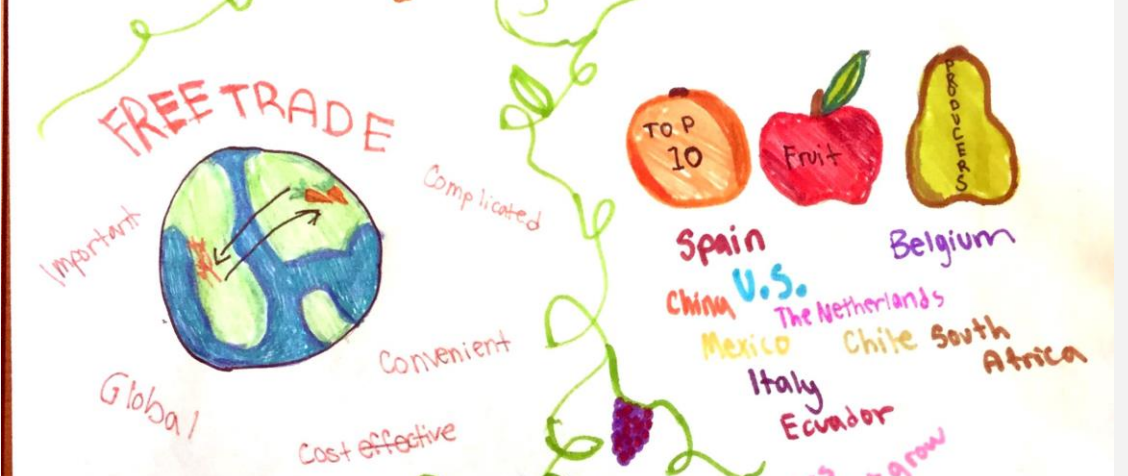 FREE TRADE
Important
Complicated
Convenient
Global
Cost effective
TOP
10
Fruit
PRODUCERS
Spain
Belgium
U.S.
China
The Netherlands
Mexico
Chile
South
Africa
Italy
Ecuador
grow